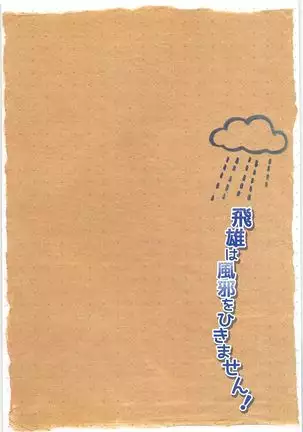 飛雄は風邪をひきません!